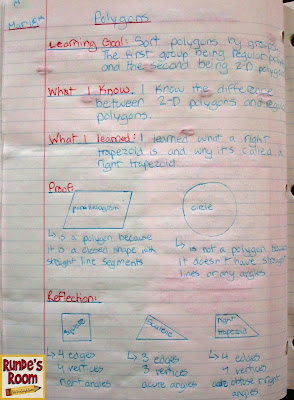 Mar 15
Polygons
Learning Goal: Sort polygons by groups.
The first group being regular poly
and the second being 2-D polygo
What I Know: I know the difference
between 2-D polygons and regu
polygons.
What I learned: I learned what a right
trapezoid is and why it's called a
right trapezoid.
Proof:
parallelogram
circle
↳ is a polygon because
it is a closed shape with
straight line segments
↳ is not a polygon beca
it doesn't have straig
lines or any angles
Reflection:
square
right
trapezoid
↳ 4 edges
4 vertices
right angles
↳ 3 edges
3 vertices
acute angles
↳ 4 edges
4 vertices
obtuse right
angles
RUNDE'S
ROOM